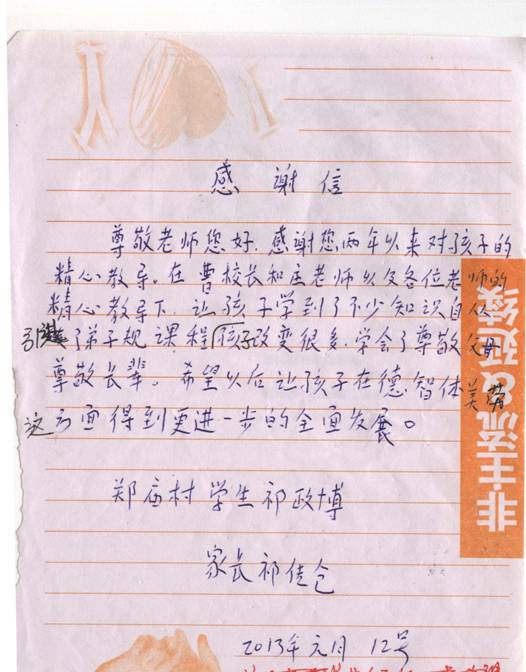 感谢信
尊敬老师您好.感谢您两年以来对孩子的
精心教导.在曹校长和孟老师以及各位老师的
精心教导下.让孩子学到了不少知识自从
引进了弟子规课程孩子改变很多.学会了尊敬父母
尊敬长辈。希望以后让孩子在德智体美劳
这方面得到更进一步的全面发展。
学生祁政博
家长祁佳仓
2013年元月12号
非主流&延续